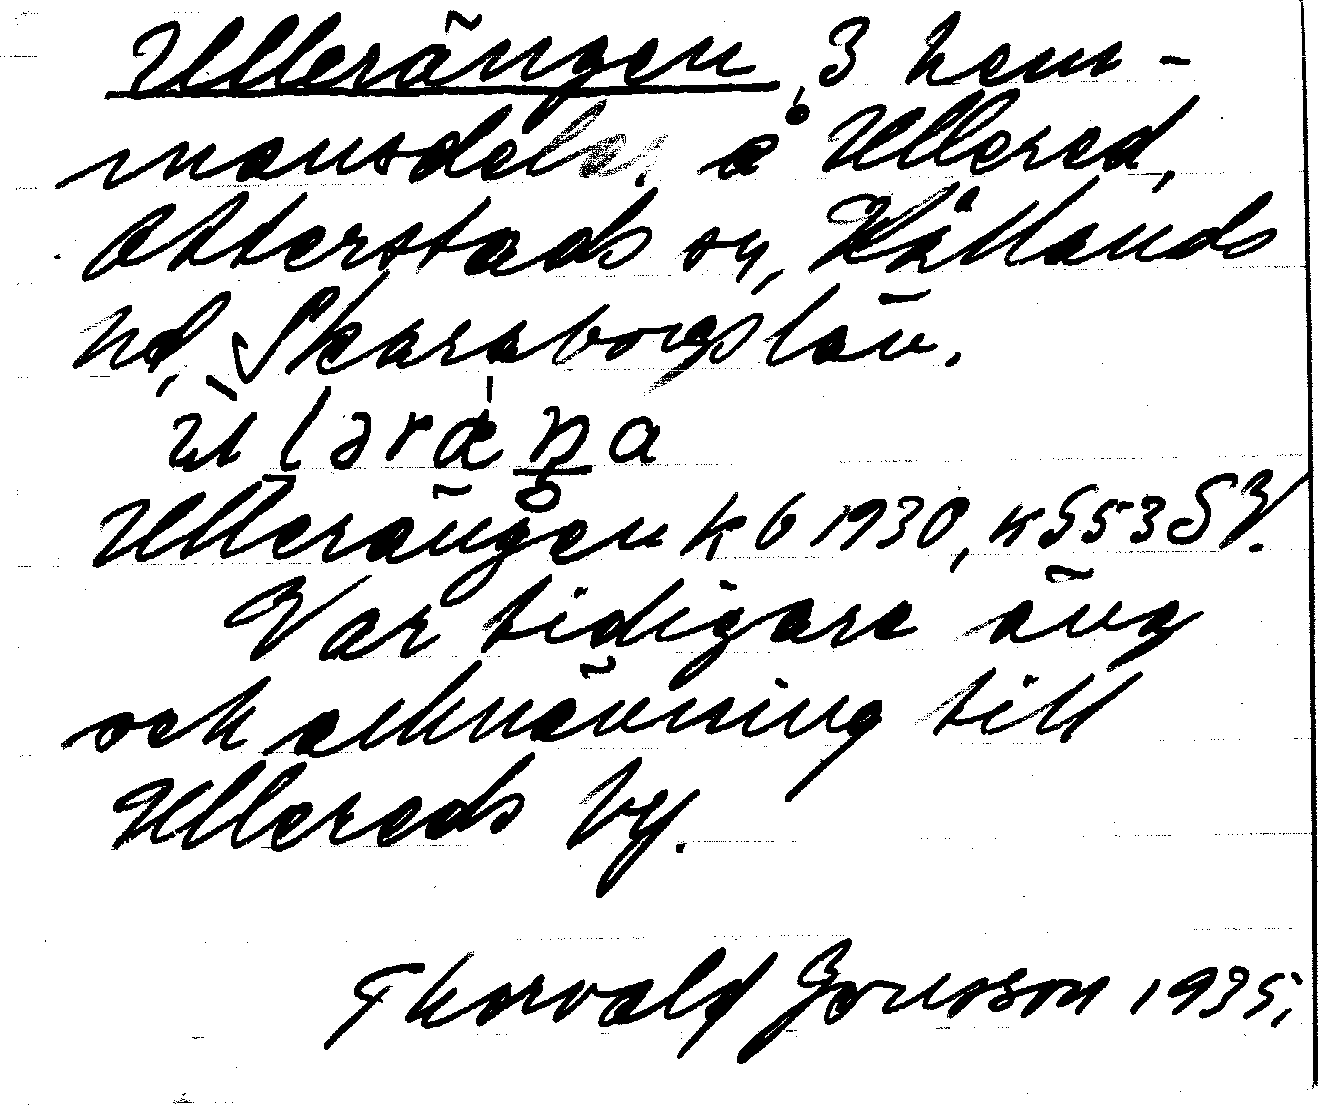 Ullerängen, 3 hem-
mansdelar å Ullered,
Otterstads sn, Kållands
hd, Skaraborgs län.
ùləræ̍ŋa
Ullerängen kb 1930, kG 53 SV.
Var tidigare äng
och allmänning till
Ullereds by.
Thorvald Jonsson 1935;